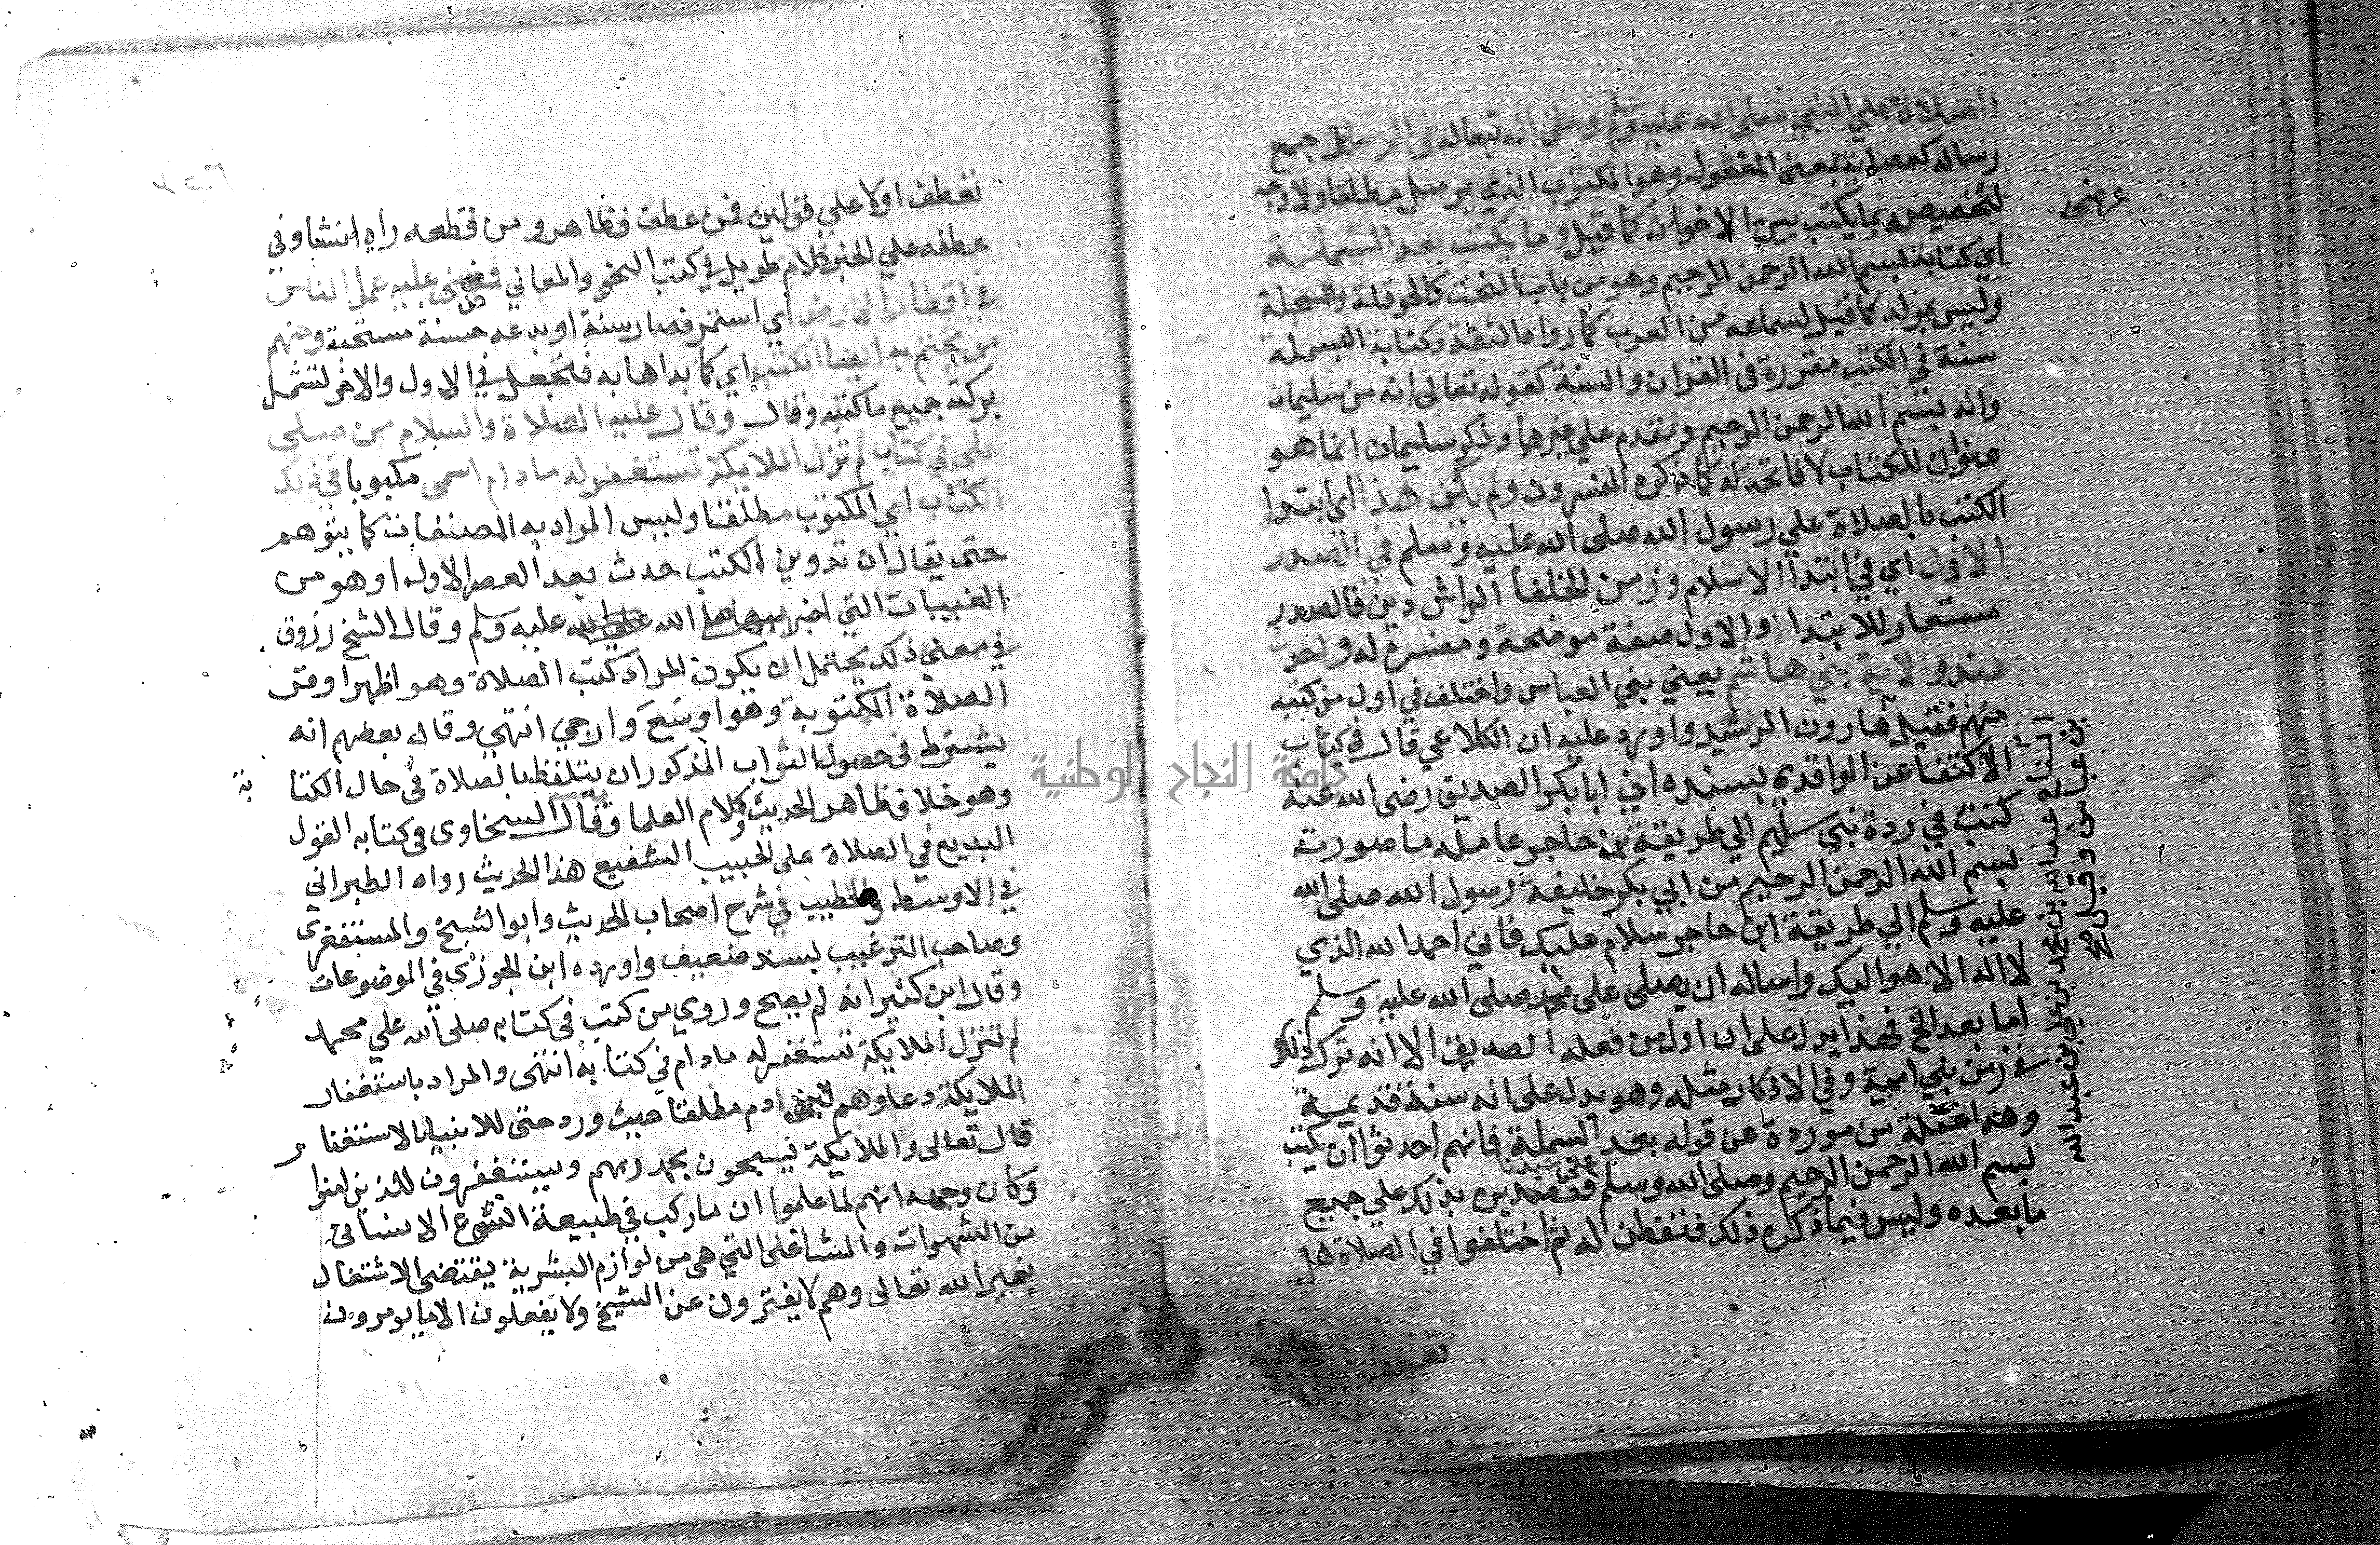 الصلاة علي النبي صلى الله عليه وسلم وعلى اله تبعا له في الرسايل جمع
رساله كعصابة بمعنى المفعول وهو المكتوب الذي يرسل مطلقا ولا وجه
لتخصيصه بما يكتب بين الاخوان كما قيل وما يكتب بعد البسملة
اي كتابة بسم الله الرحمن الرحيم وهو من باب النحت كالحوقلة والسبحلة
وليس بمولد كما قيل لسماعه من العرب كما رواه الثقة وكتابة البسملة
سنة في الكتب مقررة في القران والسنة كقوله تعالى انه من سليمان
وانه بسم الله الرحمن الرحيم وتقدم علي غيرها وذكر سليمان انما هو
عنوان للكتاب لا فاتحة له كما ذكره المفسرون ولم يكن هذا اي ابتدا
الكتب بالصلاة علي رسول الله صلى الله عليه وسلم في الصدر
الاول اي في ابتدا الاسلام وزمن الخلفا الراشدين فالصدر
مستعار للابتدا والاول صفة موضحة ومفسرة له واحدث
عند ولاية بني هاشم يعني بني العباس واختلف في اول من كتبه
منهم فقيل هارون الرشيد واورد عليه ان الكلاعي قال في كتاب
الاكتفا عن الواقدي بسنده اني ابا بكر الصديق رضى الله عنه
كتب في ردة بني سليم الي طريفة بن حاجر عامله ما صورته
بسم الله الرحمن الرحيم من ابي بكر خليفة رسول الله صلى الله
عليه وسلم الي طريفة ابن حاجر سلام عليك فاني احمد الله الذي
لا اله الا هو اليك واساله ان يصلى على محمد صلى الله عليه وسلم
اما بعد الخ فهذا يدل على ان اول من فعله الصديق الا انه ترك ذلك
في زمن بني امية وفي الاذكار مثله وهو يدل على انه سنة قديمة
وهذا غفلة من مورده عن قوله بعد البسملة فانهم احدثوا ان يكتب
بسم الله الرحمن الرحيم وصلى الله وسلم على سيدنا فتصديره بذلك علي جميع
ما بعده وليس فيما ذكره ذلك فتفطن له ثم اختلفوا في الصلاة هل
تعطف
عرضى
تعطف اولا علي قولين فمن عطف فظاهر ومن قطعه راه انشا وفي
عطفه علي الخبر كلام طويل في كتب النحو والمعاني فمضى عليه عمل الناس
في اقطار الارض اي استمر فصار سنة او بدعه حسنة مستحبة ومنهم
من يختم به ايضا الكتب اي كما بداها به فتجعل في الاول والاخر لتشمل
بركته جميع ما كتبه وقال وقال عليه الصلاة والسلام من صلى
على في كتاب لم تزل الملايكة تستغفر له مادام اسمى مكتوبا في ذلك
الكتاب اي المكتوب مطلقا وليس المراد به المصنفات كما يتوهم
حتى يقال ان تدوين الكتب حدث بعد العصر الاول او هو من
المغيبات التي اخبر بها الله عليه وسلم وقال الشيخ زروق
في معني ذلك يحتمل ان يكون المراد كتب الصلاة وهو اظهر او قرا
الصلاة المكتوبة وهو اوسع وارجي انتهي وقال بعضهم انه
يشترط في حصول الثواب المذكور ان يتلفظ بالصلاة في حال الكتا بة
وهو خلاف ظاهر الحديث وكلام العلما وقال السخاوى في كتابه القول
البديع في الصلاة على الحبيب الشفيع هذا الحديث رواه الطبراني
في الاوسط والخطيب في شرح اصحاب الحديث وابو الشيخ والمستغفرى
وصاحب الترغيب بسند ضعيف واورده ابن الجوزي في الموضوعات
وقال ابن كثير انه لم يصح وروي من كتب في كتابه صلى الله علي محمد
لم تنزل الملايكة تستغفر له مادام في كتابه انتهى والمراد باستغفار
الملايكة دعاوهم لبني ادم مطلقا حيث ورد حتى للانبيا بالاستغفار
قال تعالى والملايكة يسبحون بحمد ربهم ويستغفرون للذين امنوا
وكان وجهه انهم لما علموا ان ما ركب في طبيعة النوع الانساني
من الشهوات والمشاغل التي هي من لوازم البشرية يقتضى الاشتغال
بغير الله تعالى وهم لا يفترون عن التسبيح ولا يفعلون الا ما يومرون
جامعة النجاح الوطنية